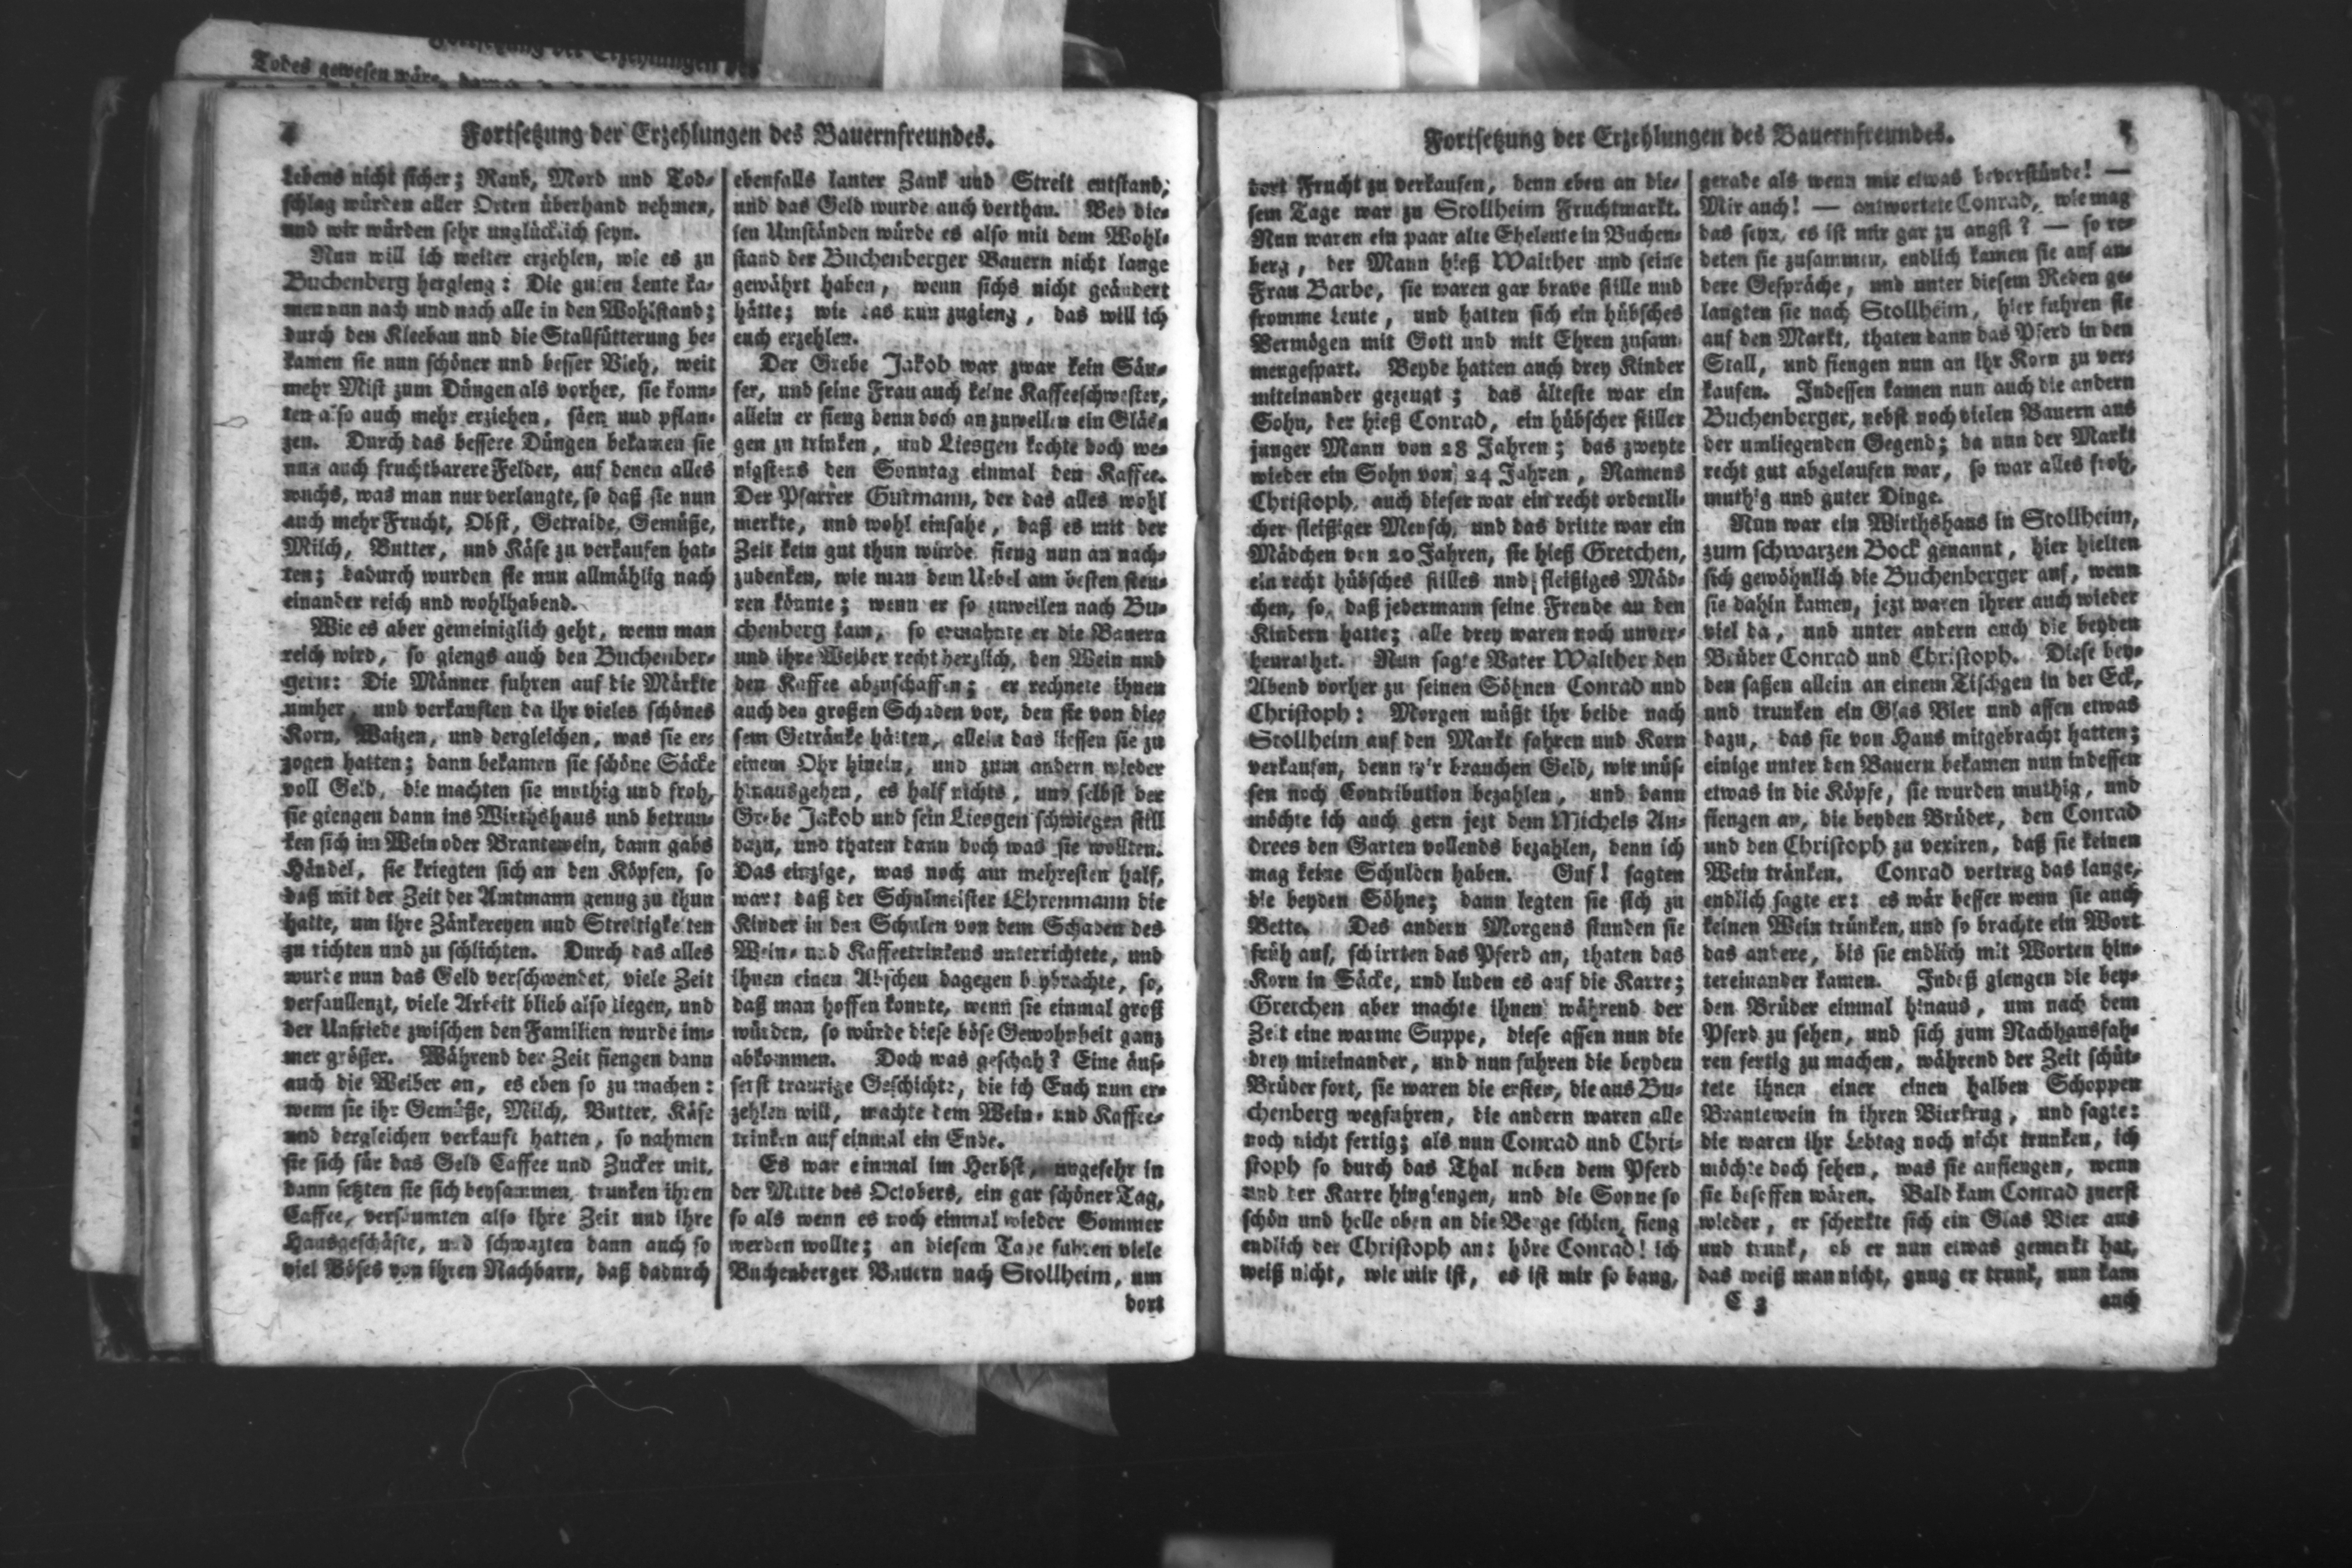 Todes gewesen wäre,
Fortsetzung der Erzehlungen des
4
Fortsetzung der Erzehlungen des Bauernfreundes.
Lebens nicht sicher; Raub, Mord und Tod-
schlag würden aller Orten überhand nehmen,
und wir würden sehr unglücklich seyn.
Nun will ich weiter erzehlen, wie es zu
Buchenberg hergieng: Die guten Leute ka-
men nun nach und nach alle in den Wohlstand;
durch den Kleebau und die Stallfütterung be-
kamen sie nun schöner und besser Vieh, weit
mehr Mist zum Düngen als vorher, sie konn-
ten also auch mehr erziehen, säen und pflan-
zen. Durch das bessere Düngen bekamen sie
nun auch fruchtbarere Felder, auf denen alles
wuchs, was man nur verlangte, so daß sie nun
auch mehr Frucht, Obst, Getraide, Gemüße,
Milch, Butter, und Käse zu verkaufen hat-
ten; dadurch wurden sie nun allmählig nach
einander reich und wohlhabend.
Wie es aber gemeiniglich geht, wenn man
reich wird, so giengs auch den Buchenber-
gern: Die Männer fuhren auf die Märkte
umher, und verkauften da ihr vieles schönes
Korn, Waizen, und dergleichen, was sie er-
zogen hatten; dann bekamen sie schöne Säcke
voll Geld, die machten sie muthig und froh,
sie giengen dann ins Wirthshaus und betrun-
ken sich im Wein oder Brantewein, dann gabs
Händel, sie kriegten sich an den Köpfen, so
daß mit der Zeit der Amtmann genug zu thun
hatte, um ihre Zänkereyen und Streitigkeiten
zu richten und zu schlichten. Durch das alles
wurde nun das Geld verschwendet, viele Zeit
verfaullenzt, viele Arbeit blieb also liegen, und
der Unfriede zwischen den Familien wurde im-
mer größer. Während der Zeit fiengen dann
auch die Weiber an, es eben so zu machen:
wenn sie ihr Gemüße, Milch, Butter, Käse
und dergleichen verkauft hatten, so nahmen
sie sich für das Geld Caffee und Zucker mit,
dann setzten sie sich beysammen, trunken ihren
Caffee, versäumten also ihre Zeit und ihre
Hausgeschäfte, und schwazten dann auch so
viel Böses von ihren Nachbarn, daß dadurch
ebenfalls lauter Zank und Streit entstand;
und das Geld wurde auch verthan. Bey die-
sen Umständen würde es also mit dem Wohl-
stand der Buchenberger Bauern nicht lange
gewährt haben, wenn sichs nicht geändert
hätte; wie das nun zugieng, das will ich
euch erzehlen.
Der Grebe Jakob war zwar kein Säu-
fer, und seine Frau auch keine Kaffeeschwester,
allein er fieng denn doch an zuweilen ein Gläs-
gen zu trinken, und Liesgen kochte doch we-
nigstens den Sonntag einmal den Kaffee.
Der Pfarrer Gutmann, der das alles wohl
merkte, und wohl einsahe, daß es mit der
Zeit kein gut thun würde, fieng nun an nach-
zudenken, wie man dem Uebel am besten steu-
ren könnte; wenn er so zuweilen nach Bu-
chenberg kam, so ermahnte er die Bauern
und ihre Weiber recht herzlich, den Wein und
den Kaffee abzuschaffen; er rechnete ihnen
auch den großen Schaden vor, den sie von die-
sem Getränke hätten, allein das liessen sie zu
einem Ohr hinein, und zum andern wieder
hinausgehen, es half nichts, und selbst der
Grebe Jakob und sein Liesgen schwiegen still
dazu, und thaten dann doch was sie wollten.
Das einzige, was noch am mehresten half,
war: daß der Schulmeister Ehrenmann die
Kinder in den Schulen von dem Schaden des
Wein- und Kaffeetrinkens unterrichtete, und
ihnen einen Abscheu dagegen beybrachte, so,
daß man hoffen konnte, wenn sie einmal groß
würden, so würde diese böse Gewohnheit ganz
abkommen. Doch was geschah? Eine äus-
serst traurige Geschichte, die ich Euch nun er-
zehlen will, machte dem Wein- und Kaffee-
trinken auf einmal ein Ende.
Es war einmal im Herbst, ungefehr in
der Mitte des Octobers, ein gar schöner Tag,
so als wenn es noch einmal wieder Sommer
werden wollte; an diesem Tage fuhren viele
Buchenberger Bauern nach Stollheim, um
dort
Fortsetzung der Erzehlungen des Bauernfreundes.
5
dort Frucht zu verkaufen, denn eben an die-
sem Tage war zu Stollheim Fruchtmarkt.
Nun waren ein paar alte Eheleute in Buchen-
berg, der Mann hieß Walther und seine
Frau Barbe, sie waren gar brave stille und
fromme Leute, und hatten sich ein hübsches
Vermögen mit Gott und mit Ehren zusam-
mengespart. Beyde hatten auch drey Kinder
miteinander gezeugt; das älteste war ein
Sohn, der hieß Conrad, ein hübscher stiller
junger Mann von 28 Jahren; das zweyte
wieder ein Sohn von 24 Jahren, Namens
Christoph, auch dieser war ein recht ordentli-
cher fleißiger Mensch, und das dritte war ein
Mädchen von 20 Jahren, sie hieß Gretchen,
ein recht hübsches stilles und fleißiges Mäd-
chen, so, daß jedermann seine Freude an den
Kindern hatte; alle drey waren noch unver-
heurathet. Nun sagte Vater Walther den
Abend vorher zu seinen Söhnen Conrad und
Christoph: Morgen müßt ihr beide nach
Stollheim auf den Markt fahren und Korn
verkaufen, denn wir brauchen Geld, wir müs-
sen noch Contribution bezahlen, und dann
möchte ich auch gern jezt dem Michels An-
drees den Garten vollends bezahlen, denn ich
mag keine Schulden haben. Gut! sagten
die beyden Söhne; dann legten sie sich zu
Bette. Des andern Morgens stunden sie
früh auf, schirrten das Pferd an, thaten das
Korn in Säcke, und luden es auf die Karre;
Gretchen aber machte ihnen während der
Zeit eine warme Suppe, diese assen nun die
drey miteinander, und nun fuhren die beyden
Brüder fort, sie waren die ersten, die aus Bu-
chenberg wegfuhren, die andern waren alle
noch nicht fertig; als nun Conrad und Chri-
stoph so durch das Thal neben dem Pferd
und der Karre hingiengen, und die Sonne so
schön und helle oben an die Berge schien, fieng
endlich der Christoph an: höre Conrad! ich
weiß nicht, wie mir ist, es ist mir so bang,
gerade als wenn mir etwas bevorstünde! —
Mir auch! — antwortete Conrad, wie mag
das seyn, es ist mir gar zu angst? — so re-
deten sie zusammen, endlich kamen sie auf an-
dere Gespräche, und unter diesem Reden ge-
langten sie nach Stollheim, hier fuhren sie
auf den Markt, thaten dann das Pferd in den
Stall, und fiengen nun an ihr Korn zu ver-
kaufen. Indessen kamen nun auch die andern
Buchenberger, nebst noch vielen Bauern aus
der umliegenden Gegend; da nun der Markt
recht gut abgelaufen war, so war alles froh,
muthig und guter Dinge.
Nun war ein Wirthshaus in Stollheim,
zum schwarzen Bock genannt, hier hielten
sich gewöhnlich die Buchenberger auf, wenn
sie dahin kamen, jezt waren ihrer auch wieder
viel da, und unter andern auch die beyden
Brüder Conrad und Christoph. Diese bey-
den saßen allein an einem Tischgen in der Eck,
und trunken ein Glas Bier und assen etwas
dazu, das sie von Haus mitgebracht hatten;
einige unter den Bauern bekamen nun indessen
etwas in die Köpfe, sie wurden muthig, und
fiengen an, die beyden Brüder, den Conrad
und den Christoph zu vexiren, daß sie keinen
Wein tränken. Conrad vertrug das lange,
endlich sagte er: es wär besser wenn sie auch
keinen Wein trünken, und so brachte ein Wort
das andere, bis sie endlich mit Worten hin-
tereinander kamen. Indeß giengen die bey-
den Brüder einmal hinaus, um nach dem
Pferd zu sehen, und sich zum Nachhausfah-
ren fertig zu machen, während der Zeit schüt-
tete ihnen einer einen halben Schoppen
Brantewein in ihren Bierkrug, und sagte:
die waren ihr Lebtag noch nicht trunken, ich
möchte doch sehen, was sie anfiengen, wenn
sie besoffen wären. Bald kam Conrad zuerst
wieder, er schenkte sich ein Glas Bier aus
und trunk, ob er nun etwas gemerkt hat,
das weiß man nicht, gnug er trunk, nun kam
C 3
auch